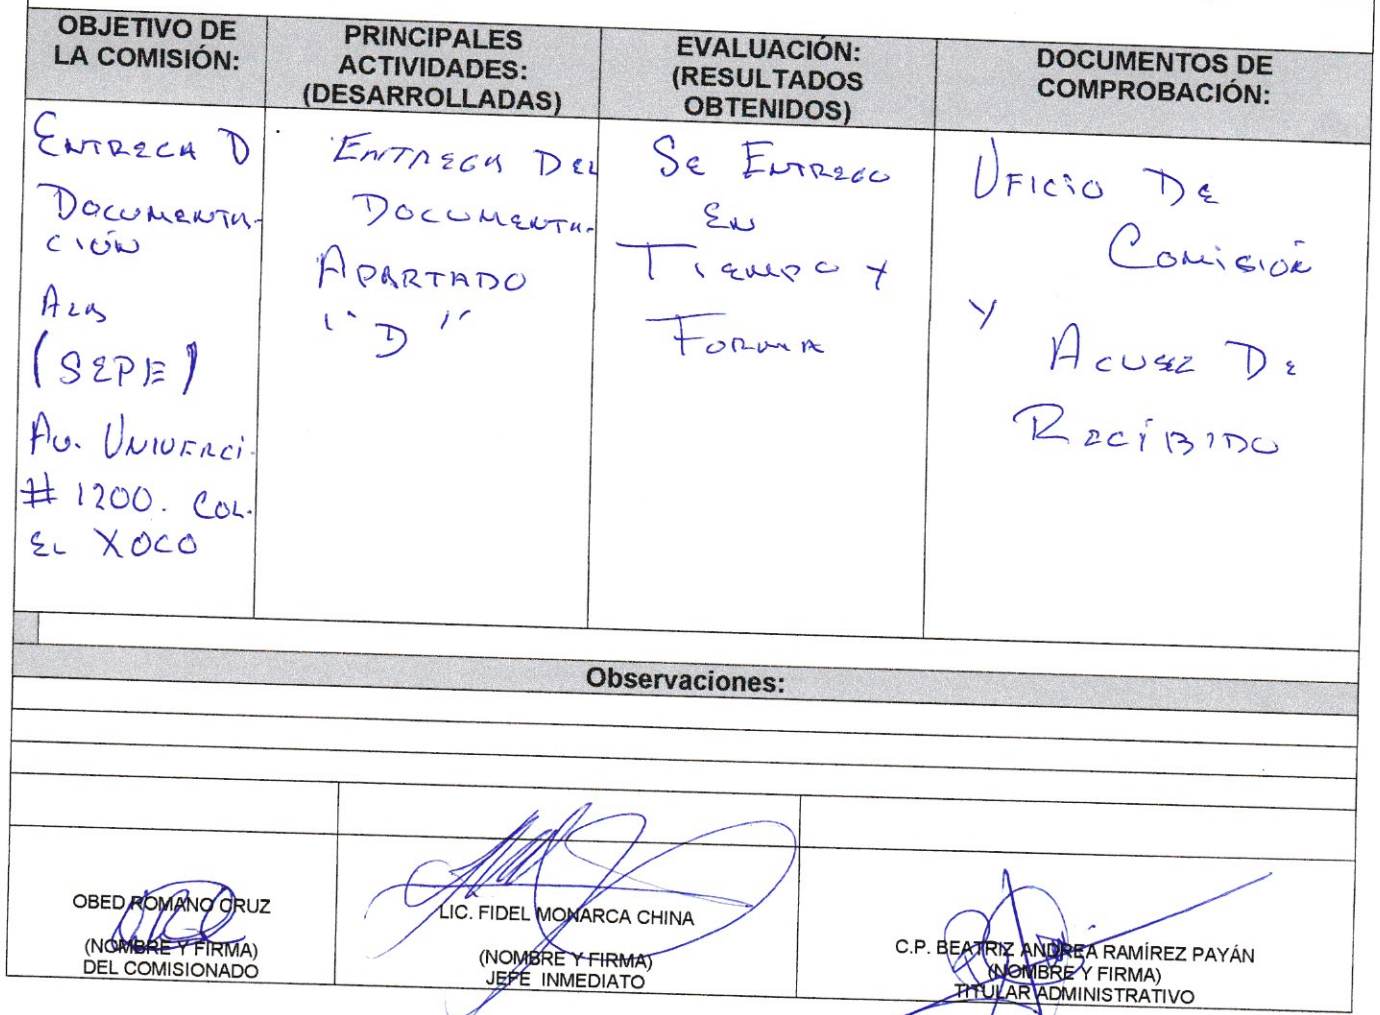 OBJETIVO DE
LA COMISIÓN:
PRINCIPALES
ACTIVIDADES:
(DESARROLLADAS)
EVALUACIÓN:
(RESULTADOS
OBTENIDOS)
DOCUMENTOS DE
COMPROBACIÓN:
ENTREGA D
DOCUMENTA-
CIÓN
(SEPE)
AV. UNIVERCI.
# 1200. COL.
EL XOCO
ENTREGA DEL
DOCUMENTA.
APARTADO
"D"
SE ENTREGO
EN
TIEMPO Y
FORMA
OFICIO DE
COMISIÓN
Y
ACUSE DE
RECIBIDO
Observaciones:
OBED ROMANO CRUZ
(NOMBRE Y FIRMA)
DEL COMISIONADO
LIC. FIDEL MONARCA CHINA
(NOMBRE Y FIRMA)
JEFE INMEDIATO
C.P. BEATRIZ ANDREA RAMÍREZ PAYÁN
(NOMBRE Y FIRMA)
TITULAR ADMINISTRATIVO